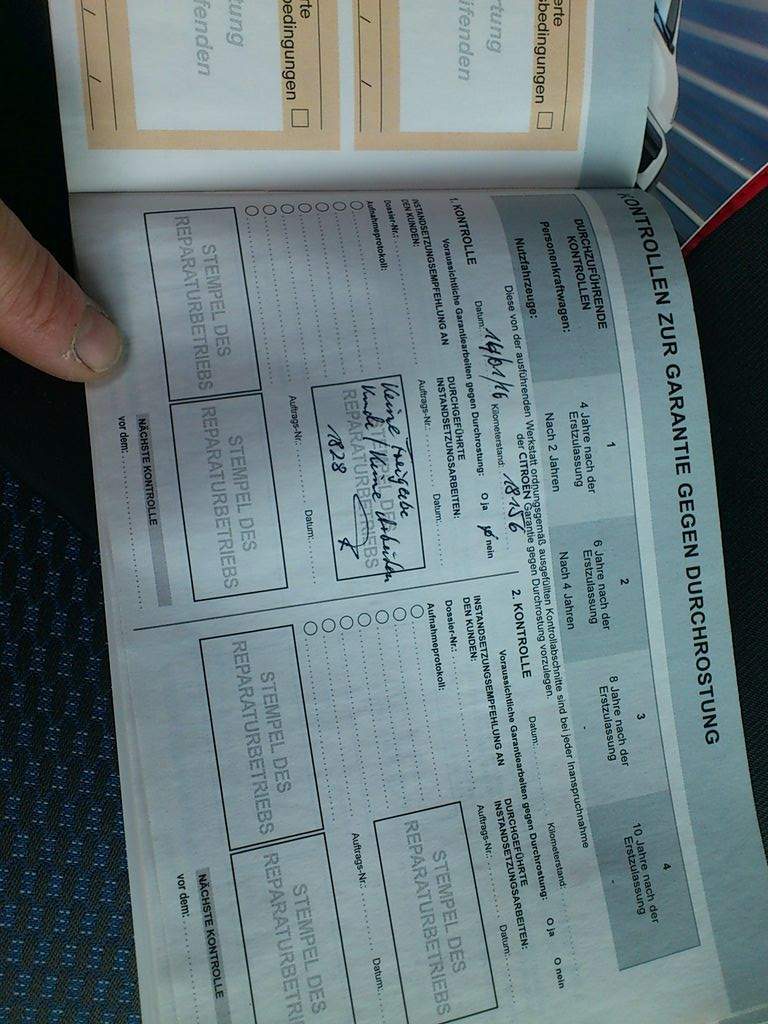 erte
sbedingungen
rtung
ifenden
/
/
erte
sbedingungen
tung
ifenden
/
/
KONTROLLEN ZUR GARANTIE GEGEN DURCHROSTUNG
DURCHZUFÜHRENDE KONTROLLEN
1
2
3
4
Personenkraftwagen:
4 Jahre nach der Erstzulassung
6 Jahre nach der Erstzulassung
8 Jahre nach der Erstzulassung
10 Jahre nach der Erstzulassung
Nutzfahrzeuge:
Nach 2 Jahren
Nach 4 Jahren
-
-
Diese von der ausführenden Werkstatt ordnungsgemäß ausgefüllten Kontrollabschnitte sind bei jeder Inanspruchnahme
der CITROËN Garantie gegen Durchrostung vorzulegen.
1. KONTROLLE
Datum: 19/01/16 Kilometerstand: 18156
Voraussichtliche Garantiearbeiten gegen Durchrostung: O ja O nein
INSTANDSETZUNGSEMPFEHLUNG AN
DEN KUNDEN:
DURCHGEFÜHRTE
INSTANDSETZUNGSARBEITEN:
Dossier-Nr.:
Auftrags-Nr.:
Datum:
Aufnahmeprotokoll:
REPARATURBETRIEBS
Keine Freigabe
Kunde / Keine Arbeiten
1828
Auftrags-Nr.:
Datum:
STEMPEL DES
REPARATURBETRIEBS
STEMPEL DES
REPARATURBETRIEBS
NÄCHSTE KONTROLLE
vor dem:
2. KONTROLLE
Datum:
Kilometerstand:
Voraussichtliche Garantiearbeiten gegen Durchrostung: O ja O nein
INSTANDSETZUNGSEMPFEHLUNG AN
DEN KUNDEN:
DURCHGEFÜHRTE
INSTANDSETZUNGSARBEITEN:
Dossier-Nr.:
Auftrags-Nr.:
Datum:
Aufnahmeprotokoll:
STEMPEL DES
REPARATURBETRIEBS
Auftrags-Nr.:
Datum:
STEMPEL DES
REPARATURBETRIEBS
STEMPEL DES
REPARATURBETRI
NÄCHSTE KONTROLLE
vor dem: